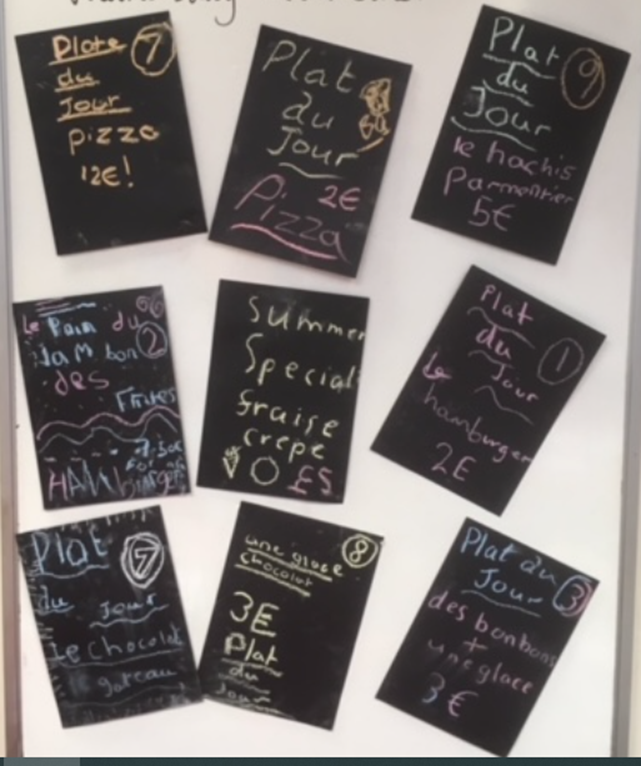 Plate
du
Jour
7
pizza
12€!
Plat
du
Jour
2€
Pizza
Plat
du
9
Jour
le hachis
Parmentier
5€
Le Pain du
Jambon
2
des
Frites
HAMburger
Summer
Special
fraise
crepe
£5
Plat
du
1
Jour
Le
hamburger
2€
Plat
7
du
Jour
Le chocolat
gateau
une glace
8
chocolat
3E
Plat
du
Jour
Plat du
Jour
3
des bonbons
+
une glace
3€